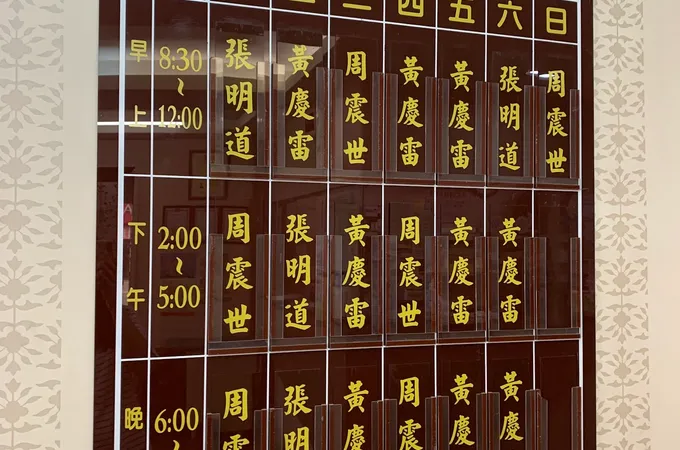 二 三 四 五 六 日
早上 8:30~12:00 張明道 黃慶雷 周震世 黃慶雷 黃慶雷 張明道 周震世
下午 2:00~5:00 周震世 張明道 黃慶雷 周震世 黃慶雷 黃慶雷
晚 6:00~ 周震 張明 黃慶 周震 黃慶 黃慶